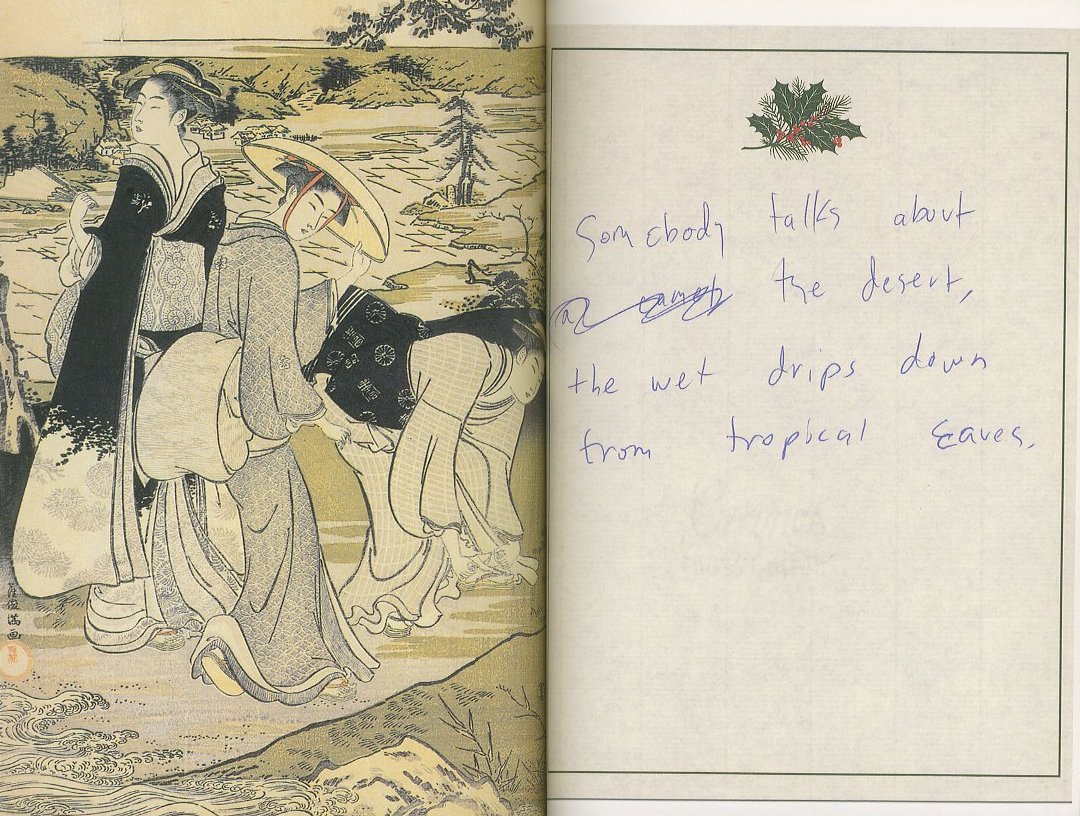 Somebody talks about
the desert,
the wet drips down
from tropical eaves.